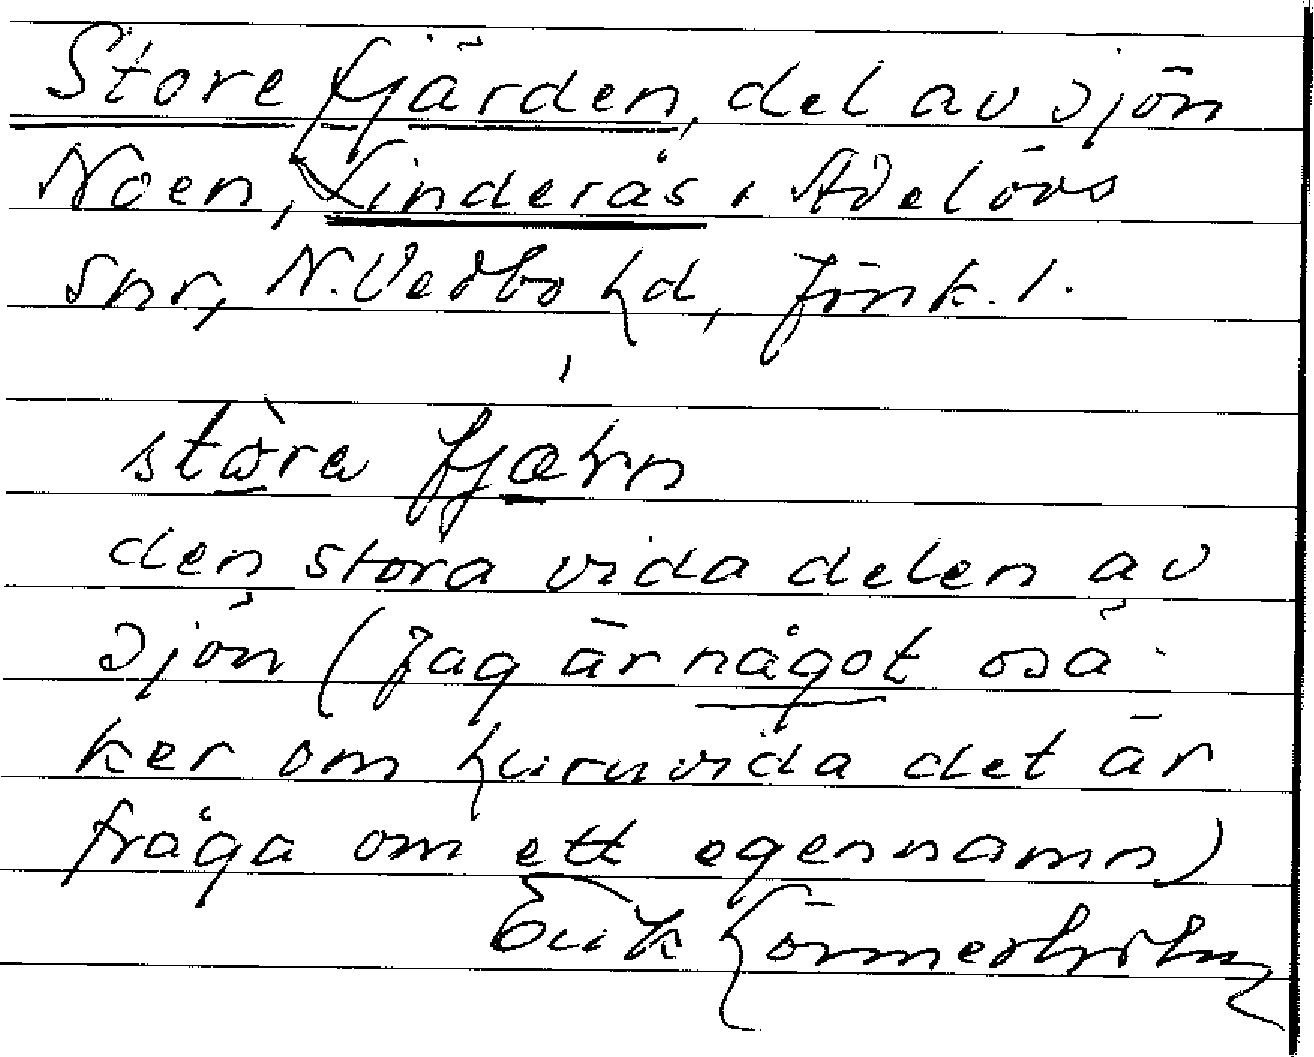 Store fjärden, del av sjön
Noen, Linderås, Adelövs
snr, N. Vedbo hd, Jönk. l.
stòra fjæ̱rn
den stora vida delen av
sjön (Jag är något osä-
ker om huruvida det är
fråga om ett egennamn)
Erik